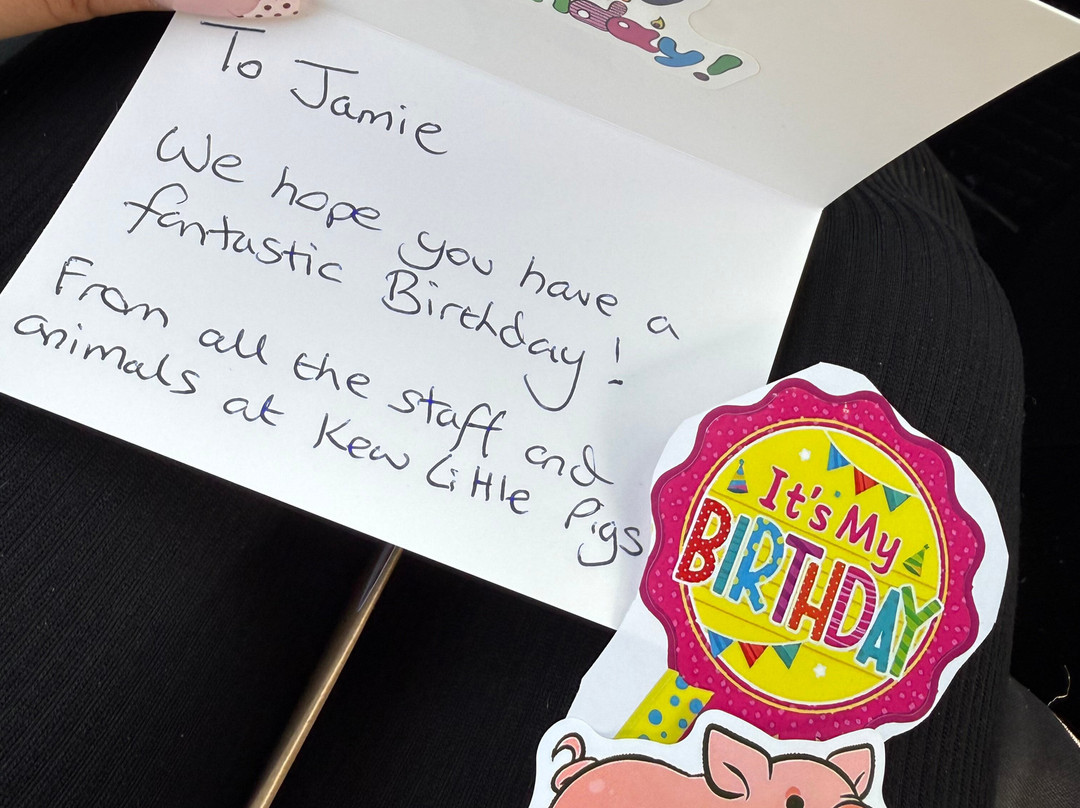 To Jamie
We hope you have a
fantastic Birthday!
From all the staff and
animals at Kew Little Pigs
It's My
BIRTHDAY